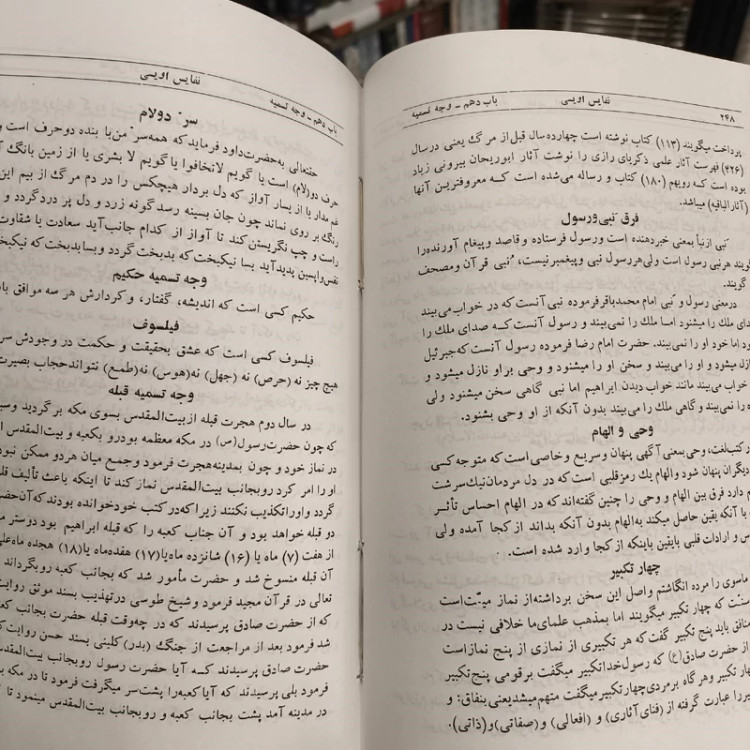 ۲۴۸ نفایس اویسی باب دهم - وجه تسمیه
پرداخت میگویند (۱۱۳) کتاب نوشته است چهارده سال قبل از مرگ یعنی در سال
(۴۲۶) فهرست آثار علمی ذکریای رازی را نوشت آثار ابوریحان بیرونی زیاد
بوده است که رویهم (۱۸۰) کتاب و رساله می‌شده است که معروفترین آنها
(آثار الباقیه) میباشد.
فرق نبی ورسول
نبی از نبأ بمعنی خبردهنده است ورسول فرستاده و قاصد و پیغام آورنده را
گویند هر نبی رسول است ولی هر رسول نبی و پیغمبر نیست، نبی قرآن ومصحف
گویند.
درمعنی رسول و نبی امام محمد باقر فرموده نبی آنست که در خواب می‌بیند
ملک را میشنود اما ملک را نمی‌بیند و رسول آنست که صدای ملک را
اما خود او را نمی‌بیند. حضرت امام رضا فرموده رسول آنست که جبرئیل
نازل میشود و او را می‌بیند و سخن او را میشنود و وحی بر او نازل میشود و
خواب می‌بیند مانند خواب دیدن ابراهیم اما نبی گاهی سخن میشنود ولی
را نمی‌بیند و گاهی ملک را می‌بیند بدون آنکه از او وحی بشنود.
وحی و الهام
در کتب لغت، وحی بمعنی آگهی پنهان و سریع و خاصی است که متوجه کسی
دیگران پنهان شود و الهام یک رمز قلبی است که در دل مردمان نیک سرشت
دارد فرق بین الهام و وحی را چنین گفته‌اند که در الهام احساس تأثر
با آنکه یقین حاصل میکند به الهام بدون آنکه بداند از کجا آمده ولی
و ارادات قلبی بایقین باینکه از کجا وارد شده است.
چهار تکبیر
ماسوی را مرده انگاشتم واصل این سخن برداشته از نماز میت است
که چهار تکبیر میگویند اما بمذهب علمای ما خلافی نیست در
منافق باید پنج تکبیر گفت که هر تکبیری از نمازی از پنج نماز است
از حضرت صادق(ع) که رسول خدا تکبیر میگفت برقومی پنج تکبیر
چهار تکبیر وهر گاه بر مردی چهار تکبیر میگفت متهم میشد یعنی بنفاق: و
را عبارت گرفته از (فنای آثاری) و (افعالی) و (صفاتی) و (ذاتی).
باب دهم - وجه تسمیه نفایس اویسی
سر دولام
حقتعالی به حضرت داود فرماید که همه سر من با بنده دو حرف است و
حرف دو(لام) است یا گویم لاتخافوا یا گویم لا بشری یا از زمین بانگ
غم مدار یا از یسار آواز که دل بردار هیچکس را در دم مرگ از بیم این
رنگ بر روی نماند چون جان بسینه رسد گونه زرد و دل پر درد گردد و
راست و چپ نگریستن کند تا آواز از کدام جانب آید سعادت یا شقاوت
نفس واپسین پدید آید بسا نیکبخت که بدبخت گردد وبسا بدبخت که نیکبخت
وجه تسمیه حکیم
حکیم کسی است که اندیشه، گفتار، و کردارش هر سه موافق
فیلسوف
فیلسوف کسی است که عشق بحقیقت و حکمت در وجودش
هیچ چیز نه (حرص) نه (جهل) نه (هوس) نه (طمع) نتواند حجاب بصیرت
وجه تسمیه قبله
در سال دوم هجرت قبله از بیت‌المقدس بسوی مکه برگردید
که چون حضرت رسول(ص) در مکه معظمه بود رو بکعبه و بیت‌المقدس
در نماز خود و چون بمدینه هجرت فرمود و جمع میان هر دو ممکن نبود
او را امر کرد رو بجانب بیت‌المقدس نماز کند تا اینکه باعث تألیف
گردد و او را تکذیب نکنند زیرا که در کتب خود خوانده بودند که آن حضرت
دو قبله خواهد بود و آن جناب کعبه را که قبله ابراهیم بود دوستر
از هفت (۷) ماه یا (۱۶) شانزده ماه یا (۱۷) هفده ماه یا (۱۸) هجده ماه
آن قبله منسوخ شد و حضرت مأمور شد که بجانب کعبه رو بگرداند
تعالی در قرآن مجید فرمود و شیخ طوسی در تهذیب بسند موثق روایت
که از حضرت صادق پرسیدند که در چه وقت قبله حضرت بجانب
شد فرمود بعد از مراجعت از جنگ (بدر) کلینی بسند حسن روایت
حضرت صادق پرسیدند که آیا حضرت رسول رو بجانب بیت‌المقدس
فرمود بلی پرسیدند که آیا کعبه را پشت سر میگرفت فرمود تا در مکه
در مدینه آمد پشت بجانب کعبه و رو بجانب بیت‌المقدس مینمود تا